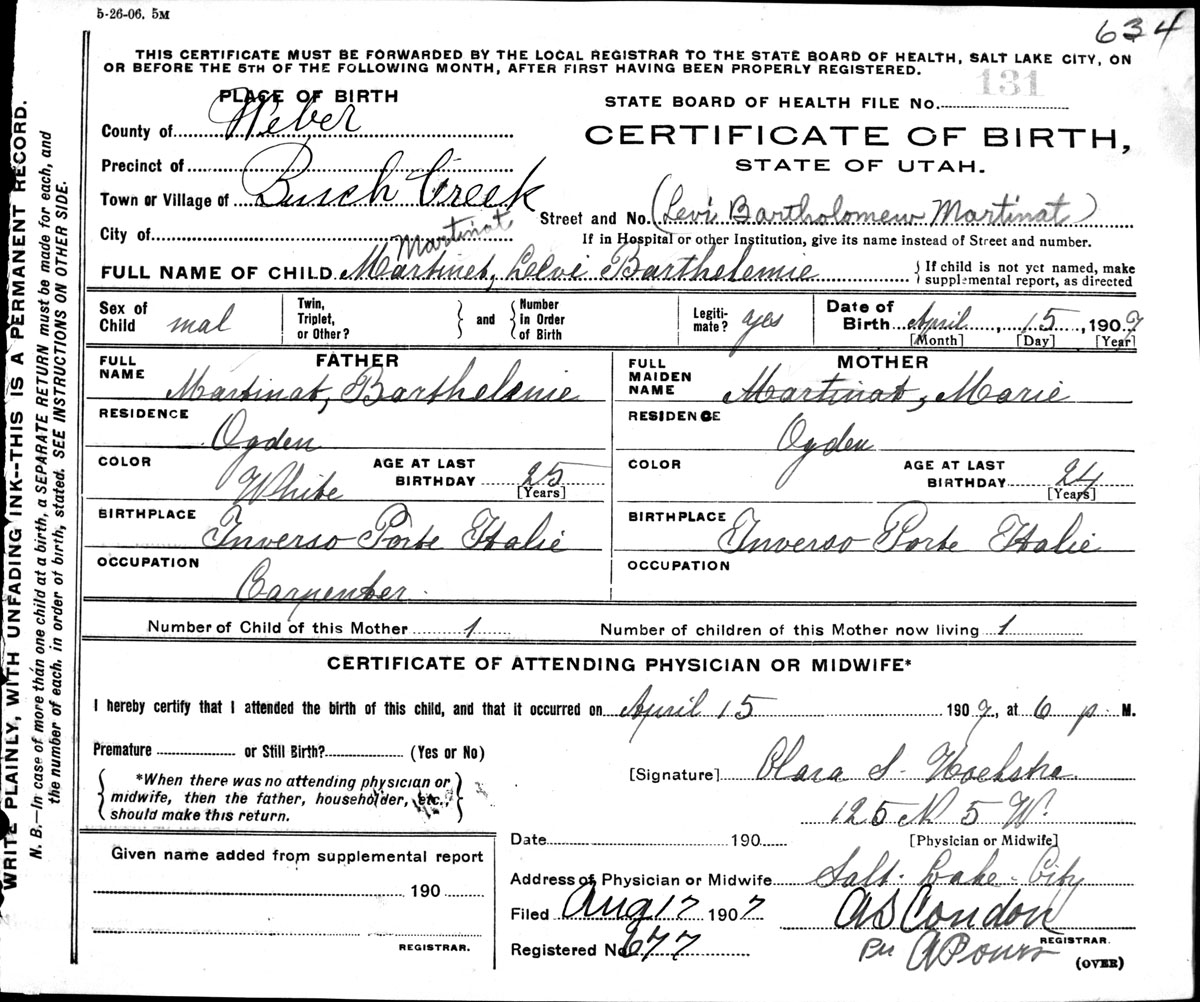 5-26-06. 5M
634
THIS CERTIFICATE MUST BE FORWARDED BY THE LOCAL REGISTRAR TO THE STATE BOARD OF HEALTH, SALT LAKE CITY, ON
OR BEFORE THE 5TH OF THE FOLLOWING MONTH, AFTER FIRST HAVING BEEN PROPERLY REGISTERED.
PLACE OF BIRTH
STATE BOARD OF HEALTH FILE No. 131
County of Weber
CERTIFICATE OF BIRTH,
STATE OF UTAH.
Precinct of
Town or Village of Burch Creek
Street and No. (Levi Bartholomew Martinat)
City of
If in Hospital or other Institution, give its name instead of Street and number.
Martinat
FULL NAME OF CHILD Martinet, Lelvi Barthelemie
If child is not yet named, make
supplemental report, as directed
Sex of Child mal
Twin, Triplet, or Other?
and
Number in Order of Birth
Legiti-mate? yes
Date of Birth April, 15, 1907
[Month] [Day] [Year]
FATHER
FULL NAME Martinat, Barthelemie
RESIDENCE Ogden
COLOR White
AGE AT LAST BIRTHDAY 25
[Years]
BIRTHPLACE Inverso Porte Italie
OCCUPATION Carpenter
MOTHER
FULL MAIDEN NAME Martinat, Marie
RESIDENCE Ogden
COLOR
AGE AT LAST BIRTHDAY 24
[Years]
BIRTHPLACE Inverso Porte Italie
OCCUPATION
Number of Child of this Mother 1
Number of children of this Mother now living 1
CERTIFICATE OF ATTENDING PHYSICIAN OR MIDWIFE*
I hereby certify that I attended the birth of this child, and that it occurred on April 15 1907, at 6 p. M.
Premature or Still Birth? (Yes or No)
*When there was no attending physician or
midwife, then the father, householder, etc.,
should make this return.
[Signature] Clara S.
125 N 5 W.
Date 190
[Physician or Midwife]
Given name added from supplemental report
190
REGISTRAR.
Address of Physician or Midwife Salt Lake City
Filed Aug 17 1907
A S Condon
REGISTRAR.
Registered No. 677
Per
(OVER)
WRITE PLAINLY, WITH UNFADING INK--THIS IS A PERMANENT RECORD.
N. B.—In case of more than one child at a birth, a SEPARATE RETURN must be made for each, and
the number of each, in order of birth, stated. SEE INSTRUCTIONS ON OTHER SIDE.